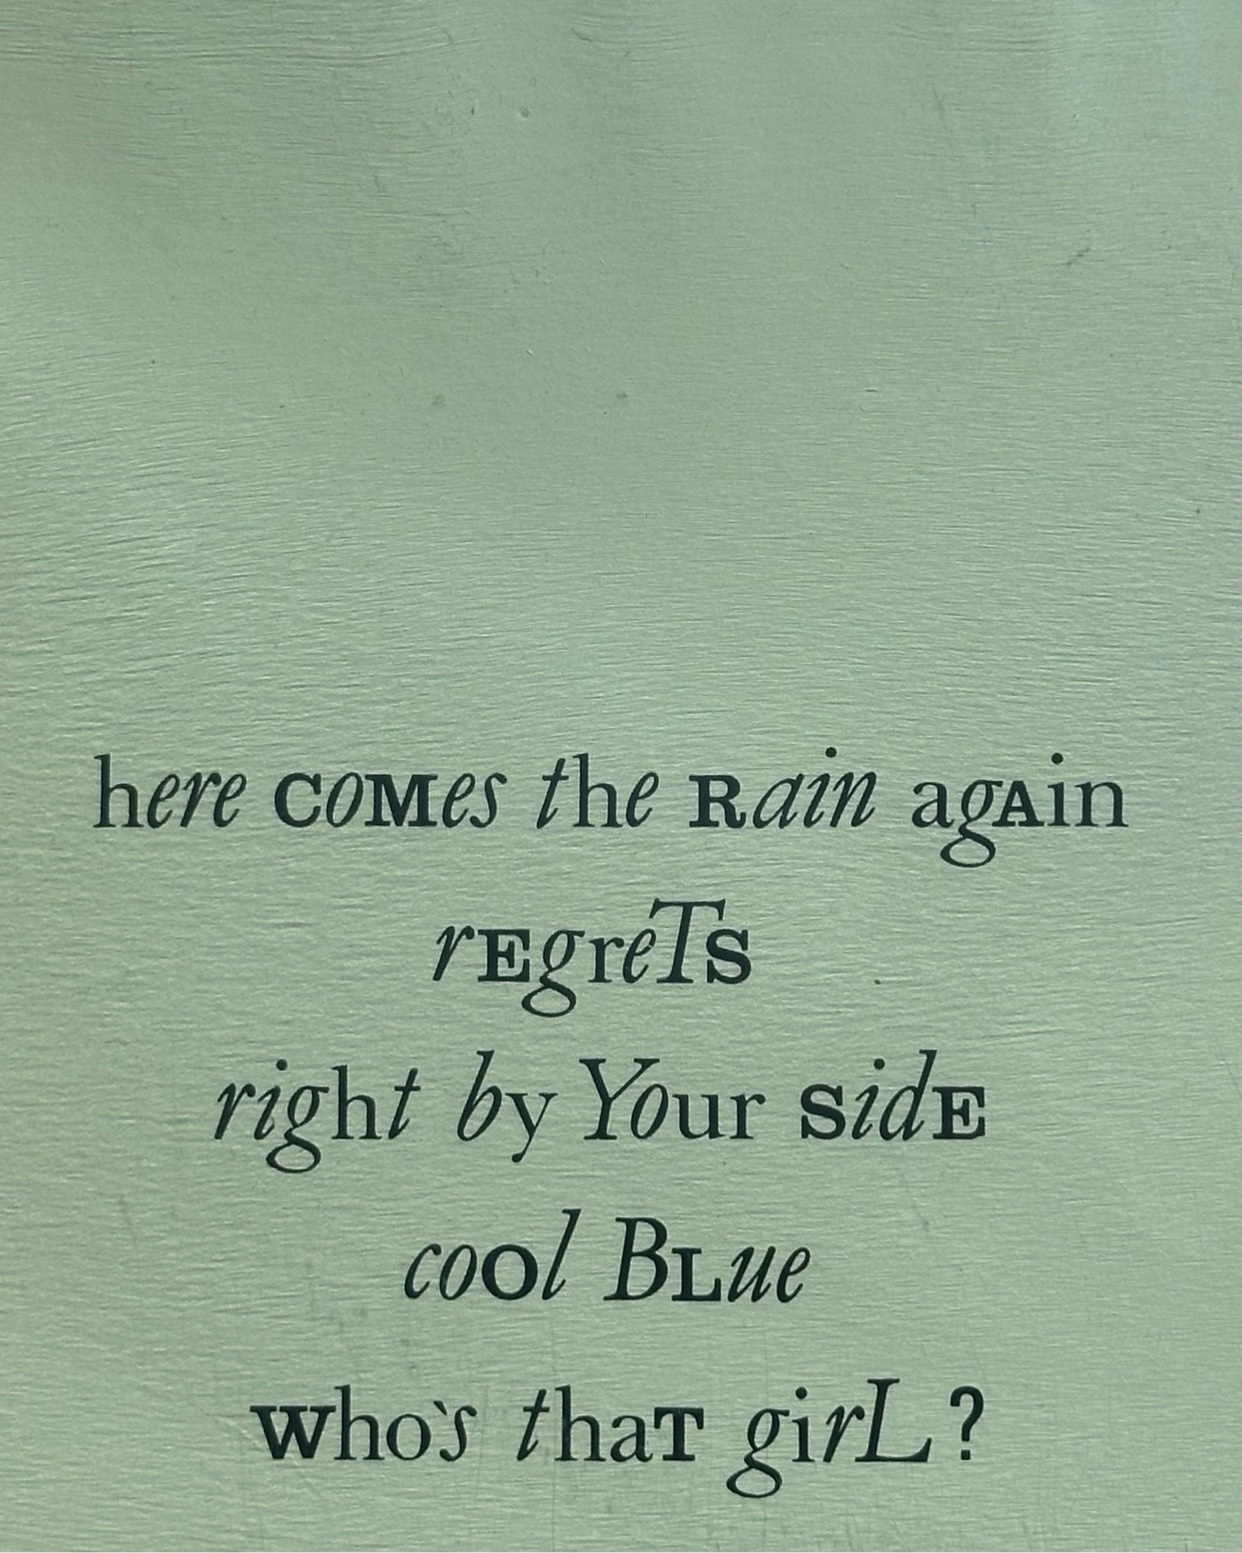 here COMes the Rain agAin
rEgreTS
right by Your SidE
coOl BLue
Who's thaT girL?